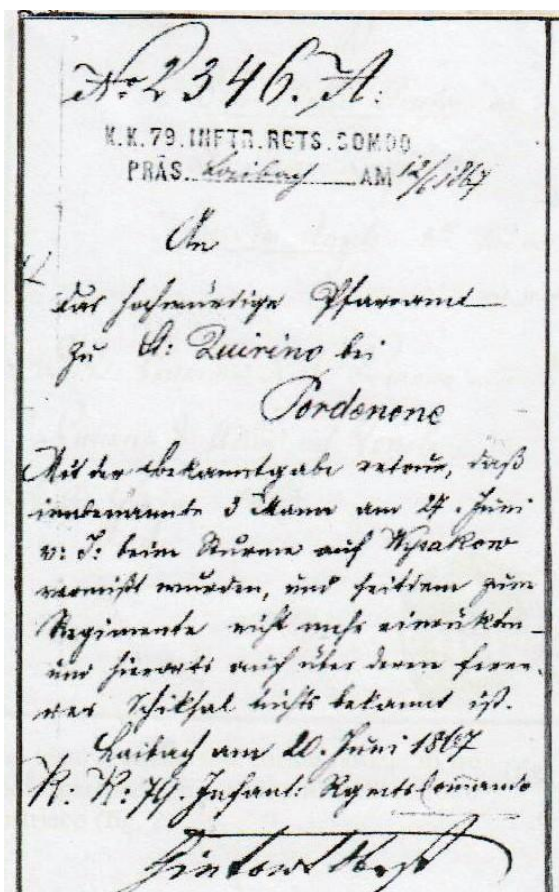 No 2346. A:
K.K. 79. INFTR. RGTS. COMDO
PRÄS. Laibach AM 12/6 1867
An
das hochwürdige Pfarramt
zu St: Quirino bei
Pordenone
Mit der Bekanntgabe retour, daß
innbenannte 3 Mann am 27. Juni
v: J: beim Sturme auf Wysokow
vermißt wurden, und seitdem zum
Regimente nicht mehr einrükten
und hierorts auch über deren ferne-
res Schiksal nichts bekannt ist.
Laibach am 20. Juni 1867
K: K: 79. Infant: Rgmtscommando